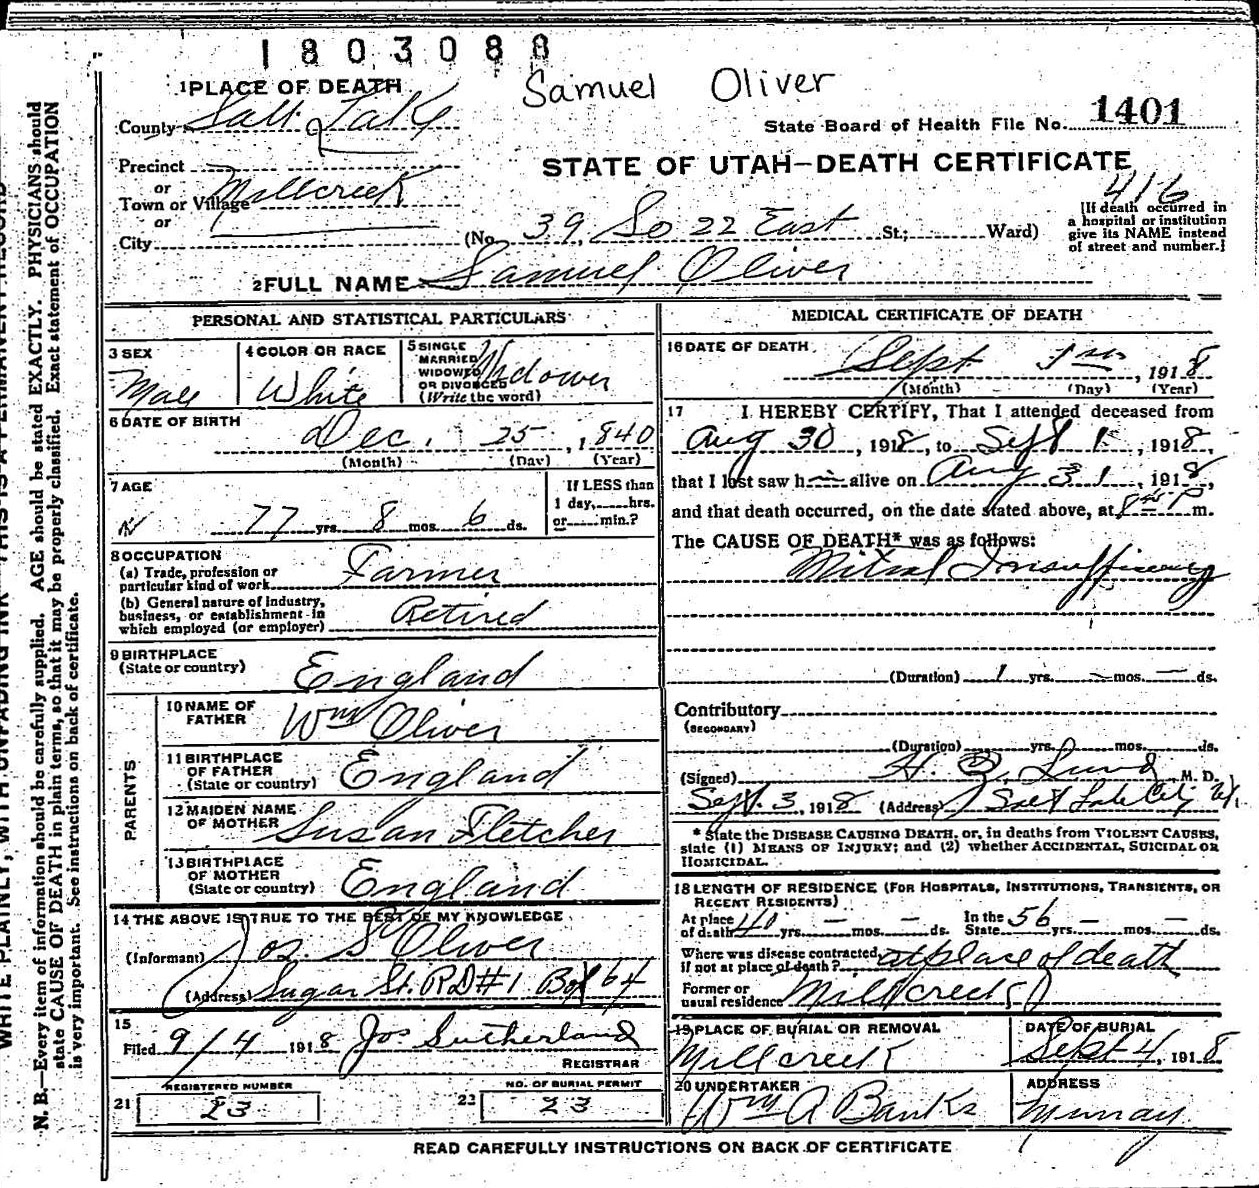 1803088
Samuel Oliver
1 PLACE OF DEATH
County Salt Lake
State Board of Health File No. 1401
Precinct
STATE OF UTAH—DEATH CERTIFICATE
or
Town or Village Millcreek
416
or
City
(No. 39 So 22 East St.; Ward)
[If death occurred in
a hospital or institution
give its NAME instead
of street and number.]
2 FULL NAME Samuel Oliver
PERSONAL AND STATISTICAL PARTICULARS
3 SEX
Male
4 COLOR OR RACE
White
5 SINGLE
MARRIED
WIDOWED
OR DIVORCED
(Write the word)
Widower
6 DATE OF BIRTH
Dec. 25, 1840
(Month) (Day) (Year)
7 AGE
77 yrs. 8 mos. 6 ds.
If LESS than
1 day, hrs.
or min.?
8 OCCUPATION
(a) Trade, profession or
particular kind of work Farmer
(b) General nature of industry,
business, or establishment in
which employed (or employer) Retired
9 BIRTHPLACE
(State or country) England
PARENTS
10 NAME OF
FATHER Wm Oliver
11 BIRTHPLACE
OF FATHER
(State or country) England
12 MAIDEN NAME
OF MOTHER Susan Fletcher
13 BIRTHPLACE
OF MOTHER
(State or country) England
14 THE ABOVE IS TRUE TO THE BEST OF MY KNOWLEDGE
(Informant) Jos. S Oliver
(Address) Sugar St. RD #1 Box 64
15
Filed 9/4 1918 Jos Sutherland
REGISTRAR
REGISTERED NUMBER
21 23
NO. OF BURIAL PERMIT
22 23
MEDICAL CERTIFICATE OF DEATH
16 DATE OF DEATH
Sept 1st, 1918
(Month) (Day) (Year)
17 I HEREBY CERTIFY, That I attended deceased from
Aug 30, 1918, to Sept 1, 1918,
that I last saw him alive on Aug 31, 1918,
and that death occurred, on the date stated above, at 8 P m.
The CAUSE OF DEATH* was as follows:
Mitral Insufficiency
(Duration) 1 yrs. – mos. – ds.
Contributory
(SECONDARY)
(Duration) yrs. mos. ds.
(Signed) H. Z. Lund, M. D.
Sept. 3, 1918 (Address) Salt Lake City Ut.
* State the DISEASE CAUSING DEATH, or, in deaths from VIOLENT CAUSES,
state (1) MEANS OF INJURY; and (2) whether ACCIDENTAL, SUICIDAL OR
HOMICIDAL.
18 LENGTH OF RESIDENCE (FOR HOSPITALS, INSTITUTIONS, TRANSIENTS, OR
RECENT RESIDENTS)
At place
of death 40 yrs. – mos. – ds.
In the
State 56 yrs. – mos. – ds.
Where was disease contracted,
if not at place of death? at place of death
Former or
usual residence Millcreek
19 PLACE OF BURIAL OR REMOVAL
Millcreek
DATE OF BURIAL
Sept 4, 1918
20 UNDERTAKER
Wm A Banks
ADDRESS
Murray
READ CAREFULLY INSTRUCTIONS ON BACK OF CERTIFICATE
WRITE PLAINLY, WITH UNFADING INK—THIS IS A PERMANENT RECORD
N. B.—Every item of information should be carefully supplied. AGE should be stated EXACTLY. PHYSICIANS should
state CAUSE OF DEATH in plain terms, so that it may be properly classified. Exact statement of OCCUPATION
is very important. See instructions on back of certificate.